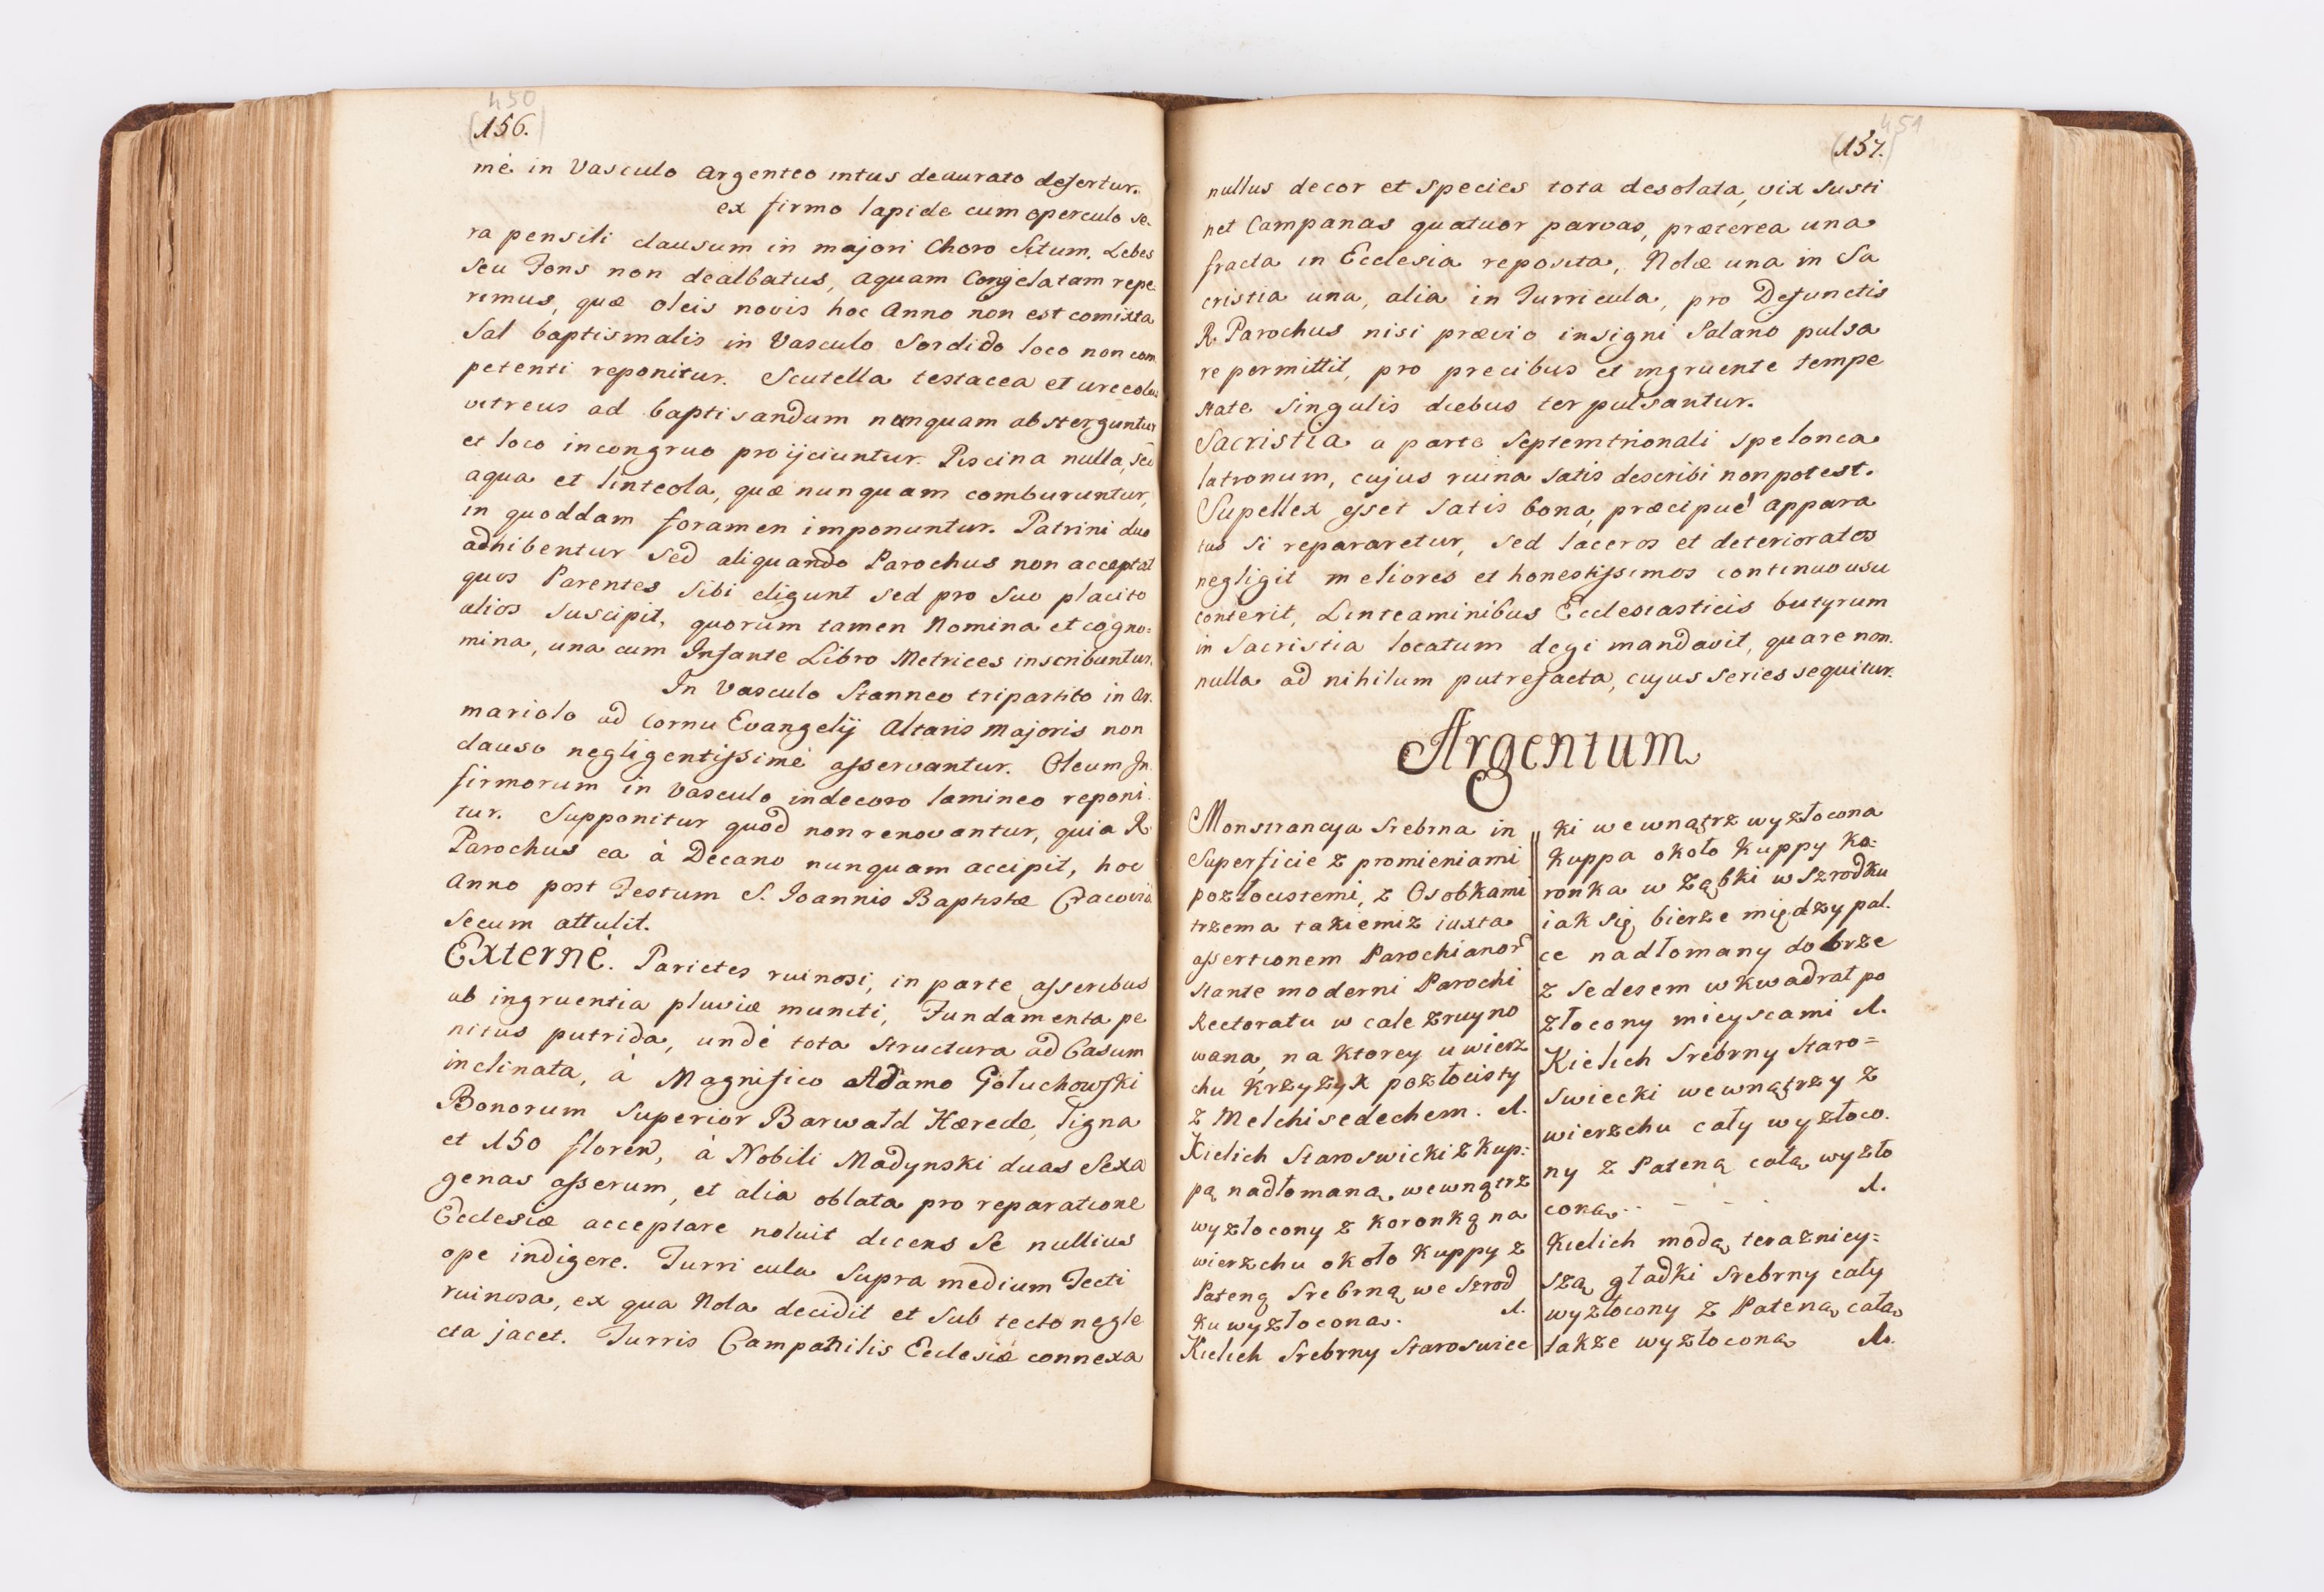 450
156.
mè in Vasculo Argenteo intus deaurato defertur.
ex firmo lapide cum operculo se-
ra pensili clausum in majori Choro Situm, Lebes
seu Fons non dealbatus, aquam Congelatam repe
rimus, quæ oleis novis hoc Anno non est comixta
Sal baptismalis in Vasculo Sordido loco non com
petenti reponitur. Scutella testacea et urceolus
vitreus ad baptisandum nunquam absterguntur
et loco incongruo proijciuntur. Piscina nulla, sed
aqua et linteola, quæ nunquam comburuntur,
in quoddam foramen imponuntur. Patrini duo
adhibentur sed aliquando Parochus non acceptat
quos Parentes sibi eligunt sed pro suo placito
alios suscipit, quorum tamen Nomina et cogno=
mina, una cum Infante Libro Metrices inscribuntur.
In Vasculo Stanneo tripartito in Ar.
mariolo ad Cornu Evangelij Altaris Majoris non
clauso negligentissimè asservantur. Oleum In
firmorum in Vasculo indecoro lamineo reponi
tur. Supponitur quod non renovantur, quia R.
Parochus ea à Decano nunquam accipit, hoc
Anno post Festum S. Ioannis Baptistæ Cracoviâ
secum attulit.
Externè. Parietes ruinosi, in parte asseribus
ab ingruentia pluviæ muniti, Fundamenta pe
nitus putrida, undè tota structura ad Casum
inclinata, à Magnifico Adamo Gołuchowski
Bonorum Superior Barwałd Hærede, ligna
et 150 floren, à Nobili Madynski duas Sexa
genas asserum, et alia oblata pro reparatione
Ecclesiæ acceptare noluit dicens se nullius
ope indigere. Turricula supra medium Tecti
ruinosa, ex qua Nola decidit et sub tecto negle
cta jacet. Turris Campanilis Ecclesiæ connexa
451
157.
nullus decor et species tota desolata, vix susti
net Campanas quatuor parvas, præterea una
fracta in Ecclesia reposita, Nolæ una in Sa
cristia una, alia in Turricula, pro Defunctis
R. Parochus nisi prævio insigni Salario pulsa
re permittit, pro precibus et ingruente tempe
state singulis diebus ter pulsantur.
Sacristia a parte Septemtrionali spelonca
latronum, cujus ruina satis describi non potest.
Supellex esset satis bona, præcipuè appara
tus si repararetur, sed laceros et deterioratos
negligit meliores et honestissimos continuo usu
conterit, Linteaminibus Ecclesiasticis butyrum
in Sacristia locatum degi mandavit, quare non.
nulla ad nihilum putrefacta, cujus series sequitur.
Argentum
Monstrancya Srebrna in
Superficie z promieniami
pozłocistemi, z Osobkami
trzema takiemiz iuxta
assertionem Parochianor
stante moderni Parochi
Rectoratu w cale zruyno
wana, na ktorey u wierz
chu Krzyzyk pozłocisty
z Melchisedechem. 1.
Kielich Staroswicki z kup=
pą nadłomaną, wewnątrz
wyzłocony z koronką na
wierzchu około kuppy z
Pateną Srebrną we szrod
ku wyzłocona. 1.
Kielich Srebrny Staroswiec
ki wewnątrz wyzłocona
kuppa około kuppy ko=
ronka w Ząbki w Szrodku
iak się bierze między pal.
ce nadłomany dobrze
z Sedesem w kwadrat po
złocony mieyscami 1.
Kielich Srebrny Staro=
swiecki wewnątrzy z
wierzchu cały wyzłoco.
ny z Pateną całą wyzło
coną. - - - - 1.
Kielich modą teraznicy=
szą gładki srebrny cały
wyzłocony z Pateną całą
takze wyzłoconą 1.